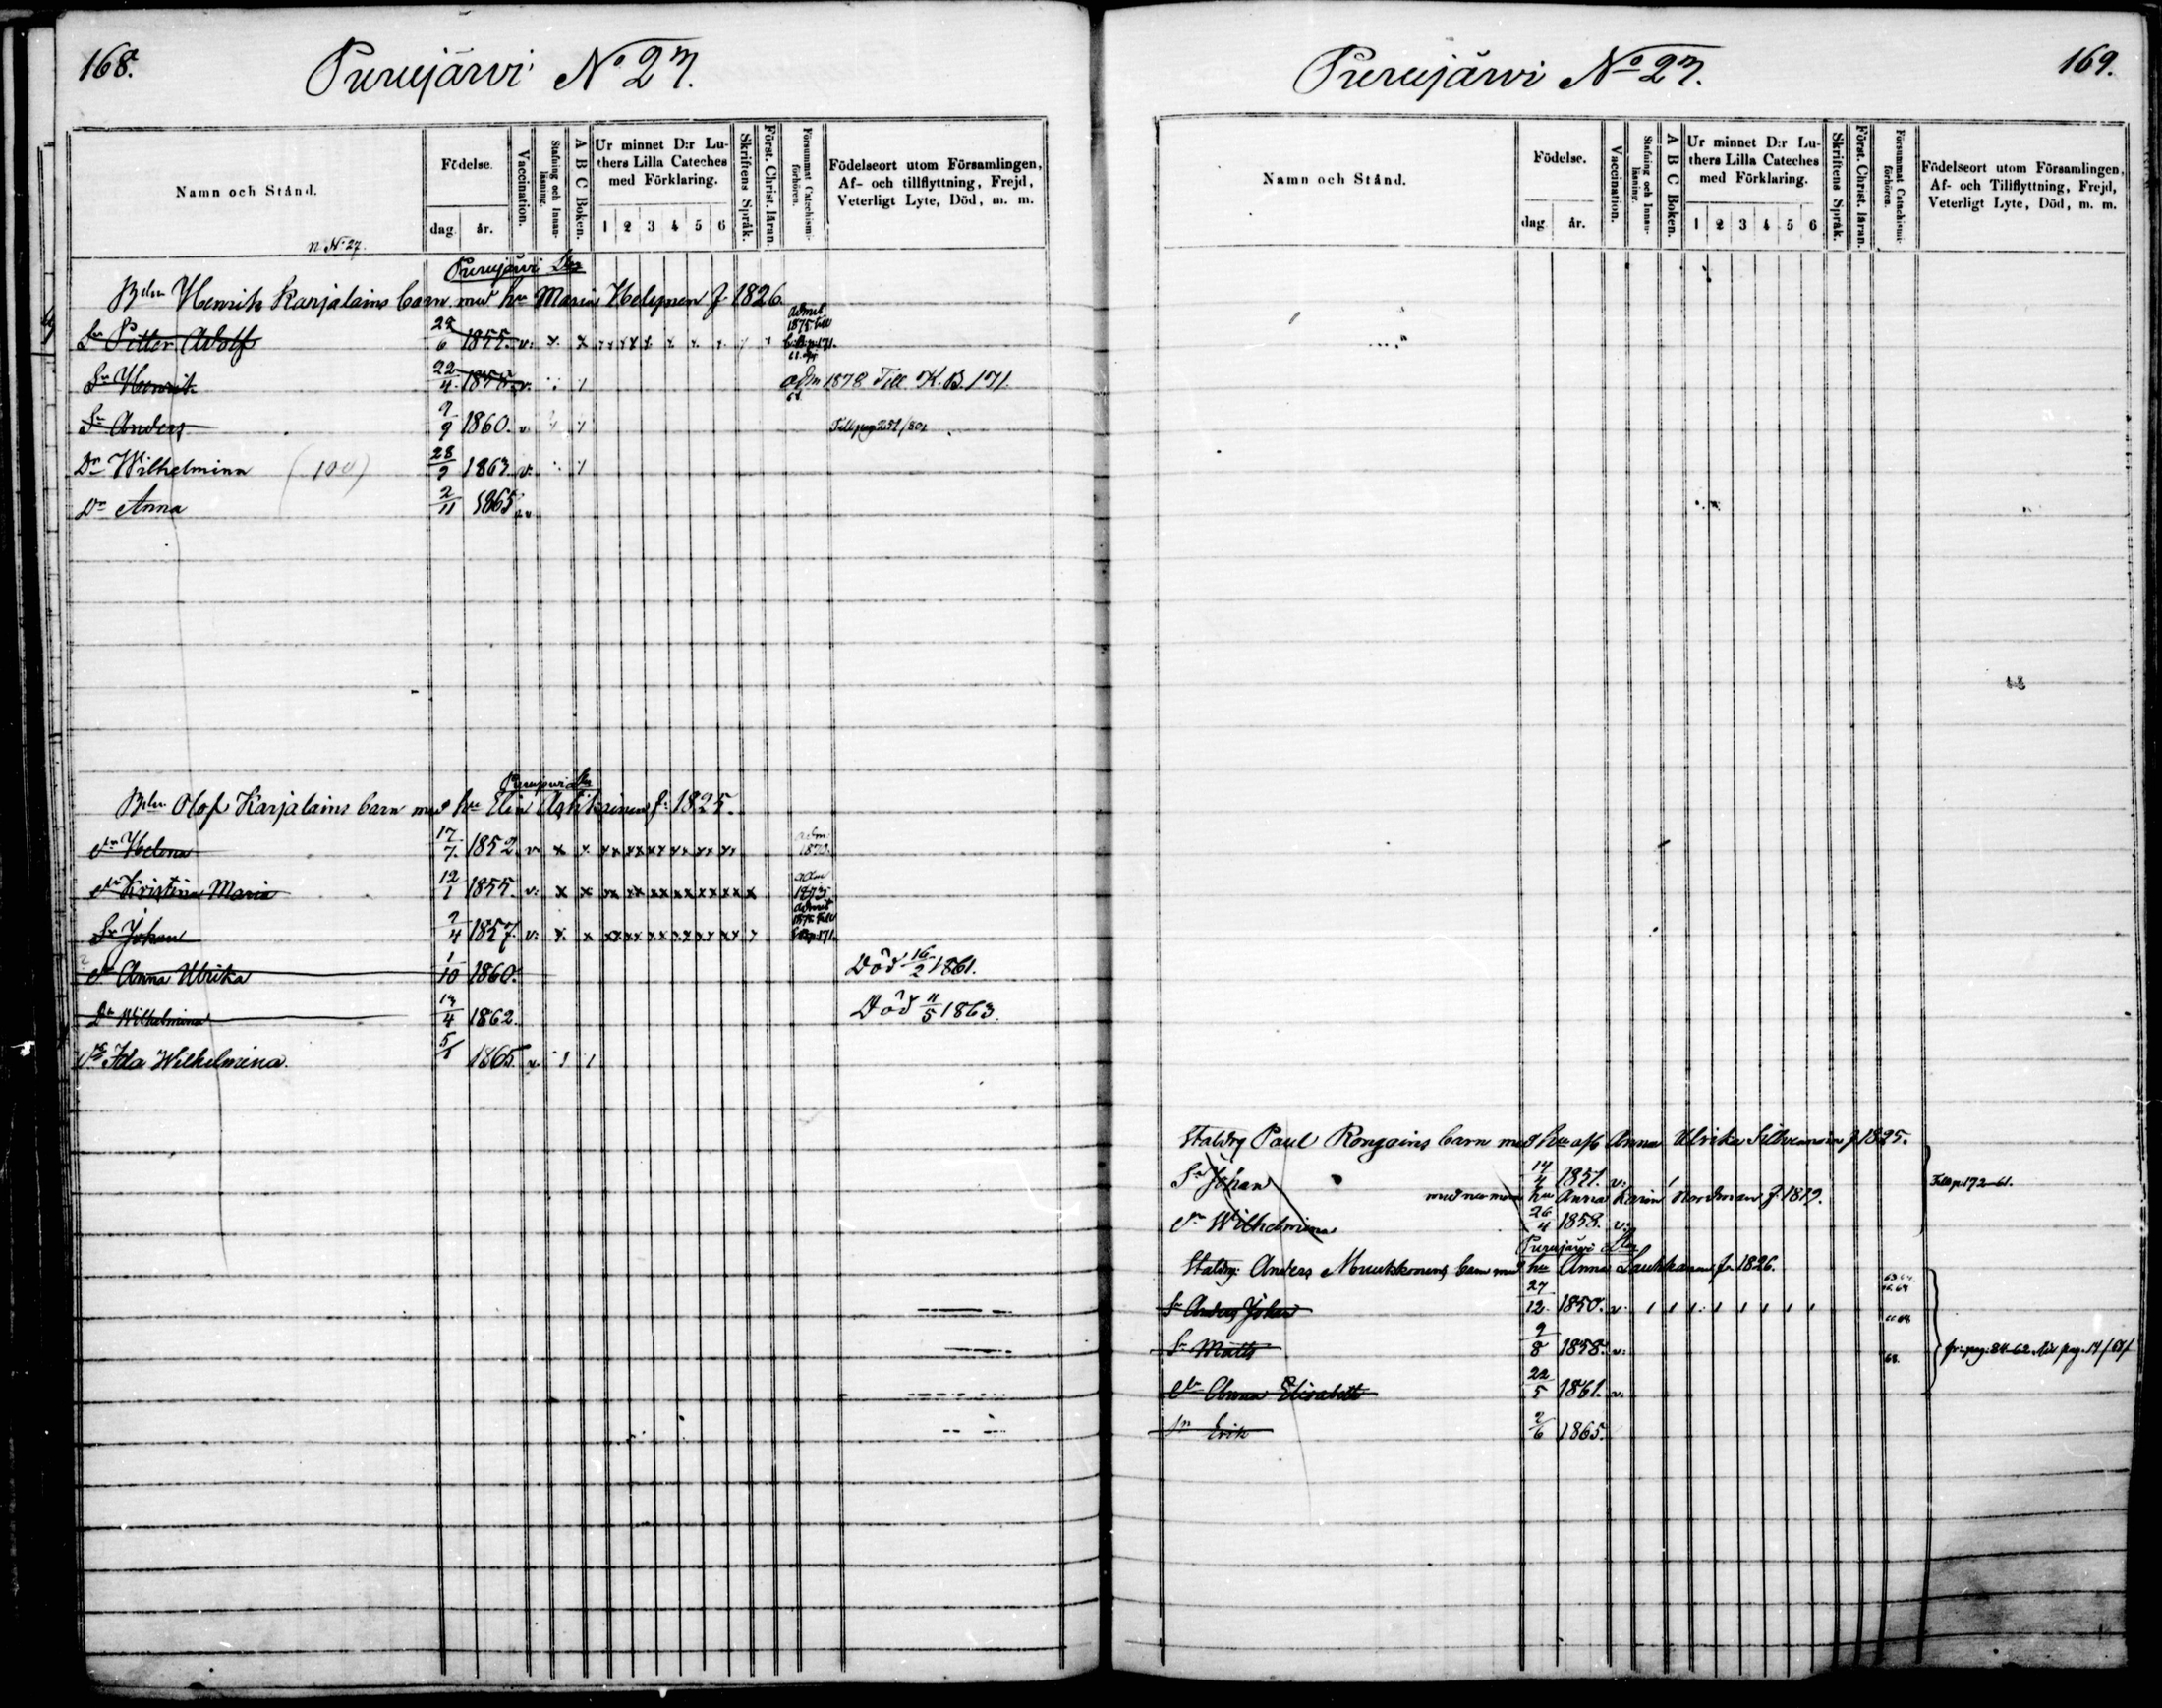 168.
Purujärvi No 27.
Namn och Stånd.
Födelse.
dag.
år.
Vaccination.
Stafning och Innanläsning.
A B C Boken.
Ur minnet D:r Luthers Lilla Cateches med Förklaring.
1 2 3 4 5 6
Skriftens Språk.
Först. Christ. läran.
Försummat Catechismiförhören.
Födelseort utom Församlingen, Af- och tillflyttning, Frejd, Veterligt Lyte, Död, m. m.
n No 27.
Purujärvi
Henrik Karjalains barn med hu Maria Holopnen f. 1826.
Sn Petter Adolf 28/6 1855. v. x x
admit. 1875 till
Sn Henrik 22/4. 1858. v. adm 1878 Till K. B. 171.
Sn Anders 9/9 1860. v.
Dr Wilhelmina (100) 28/9 1863 v.
Dr Anna 2/11 1865
Olof Karjalains barn med hu Elin f. 1825.
Dr Helena 17/7. 1852. v. x x xx xx xx xx xx xx
adm 1870.
Dr Kristina Maria 12/1 1855. v. x x xx xx xx xx xx xx x
adm 1873
Sn Johan 2/4 1857. v. x x xx xx xx xx xx xx x
Dr Anna Ulrika 1/10 1860. Död 16/2 1861.
Dr Wilhelmina 13/4 1862. Död 11/5 1863.
Dr Ida Wilhelmina. 5/1 1865. v.
169.
Purujärvi No 27.
Namn och Stånd.
Födelse.
dag
år.
Vaccination.
Stafning och Innanläsning.
A B C Boken.
Ur minnet D:r Luthers Lilla Cateches med Förklaring.
1 2 3 4 5 6
Skriftens Språk.
Först. Christ. läran.
Försummat Catechismiförhören.
Födelseort utom Församlingen, Af- och Tillflyttning, Frejd, Veterligt Lyte, Död, m. m.
Paul Rongains barn med hu afl Anna Ulrika f 1825.
Sn Johan 14/4 1851. v. Till p. 172-61.
hu Anna Karin Nordman f. 1819.
Dr Wilhelmina 26/4 1858. v.
Purujärvi
Anders Muukkonens barn med hu Anna Laukkanen f. 1826.
Sn Anders Johan 27/12. 1850. v.
Sn Matts 9/8 1858. v. fr. pag. 84-62
Dr Anna Elisabeth 22/5 1861. v.
Sn Erik 2/6 1865.